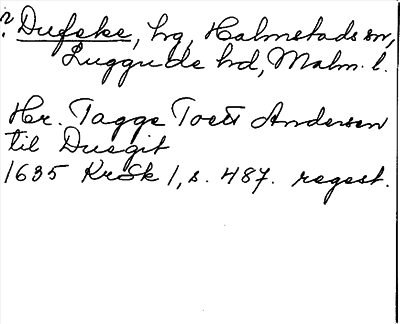 ? Dufeke, hg, Halmstads sn,
Luggude hd, Malm. l.
Hr. Tagge Toett Andersen
til Duegit
1635 KrSk 1, s. 487. regest.